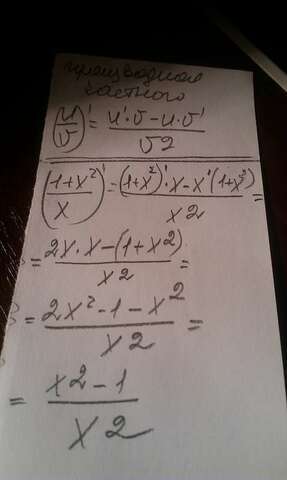 производная
частного
(u/v)' = u'·v - u·v' / v2
((1+x²)/x)' = (1+x²)'·x - x'(1+x²) / x2 =
= 2x·x - (1+x²) / x2 =
= 2x² - 1 - x² / x2 =
= x2 - 1 / x2